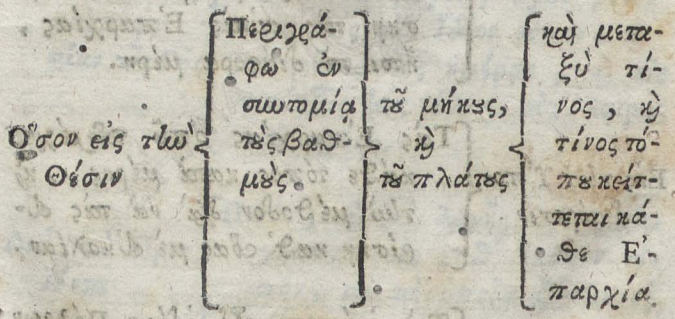 Ὅσον εἰς τὴν
Θέσιν
Περιγρά-
φω ἐν
συντομίᾳ
τοὺς βαθ-
μοὺς
τοῦ μήκους,
καὶ
τοῦ πλάτους
καὶ μετα-
ξὺ τί-
νος, καὶ
τίνος τό-
που κείτ-
τεται κά-
θε Ἐ-
παρχία